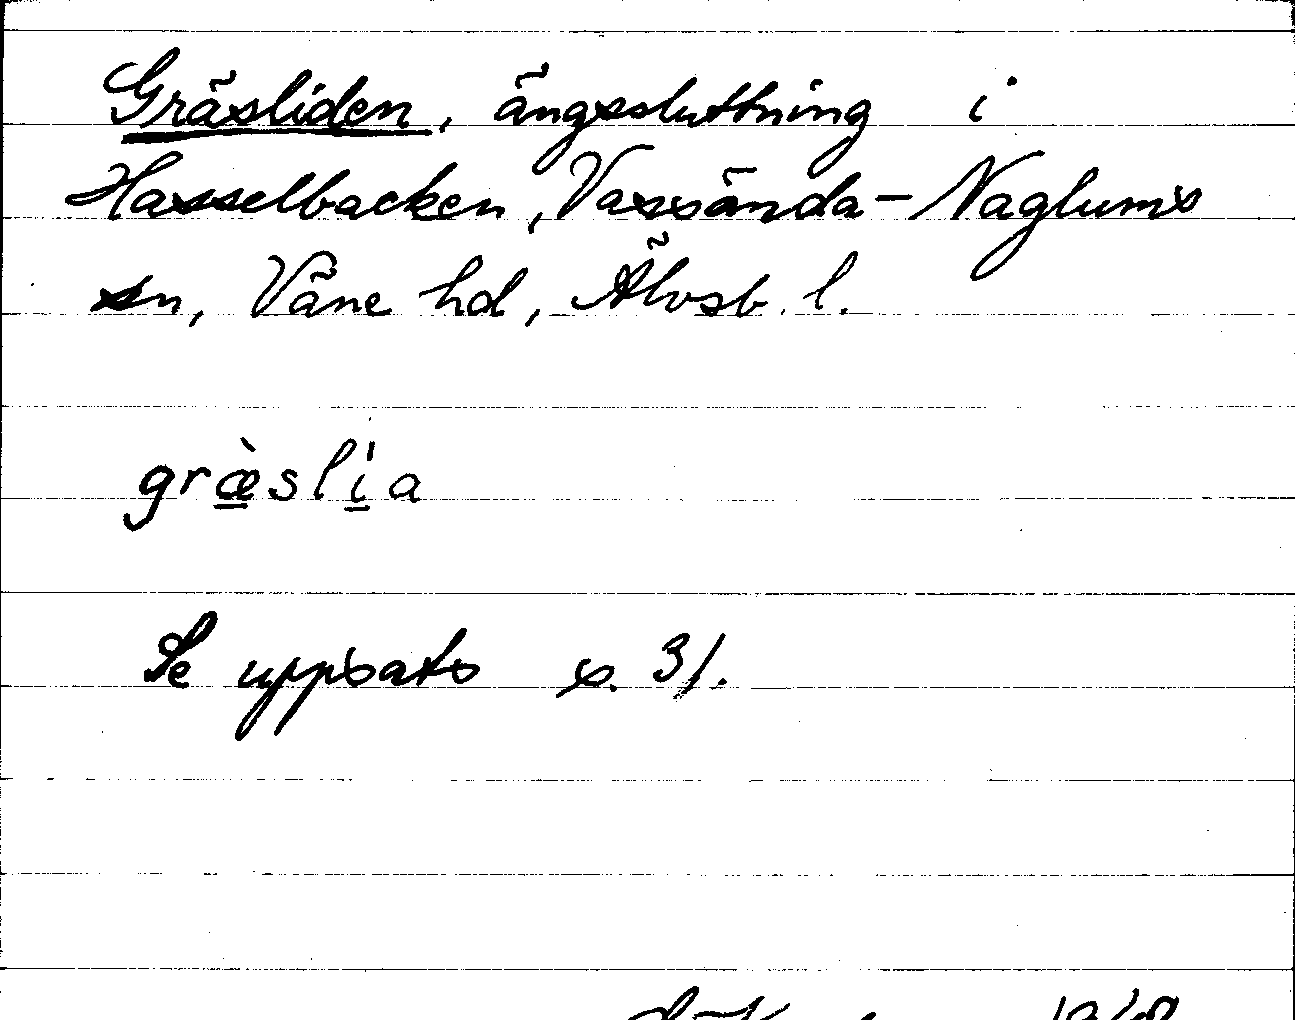 Gräsliden, ängssluttning i
Hasselbacken, Vassända-Naglums
sn, Väne hd, Älvsb. l.
græ̀slía
Se uppsats s. 31.